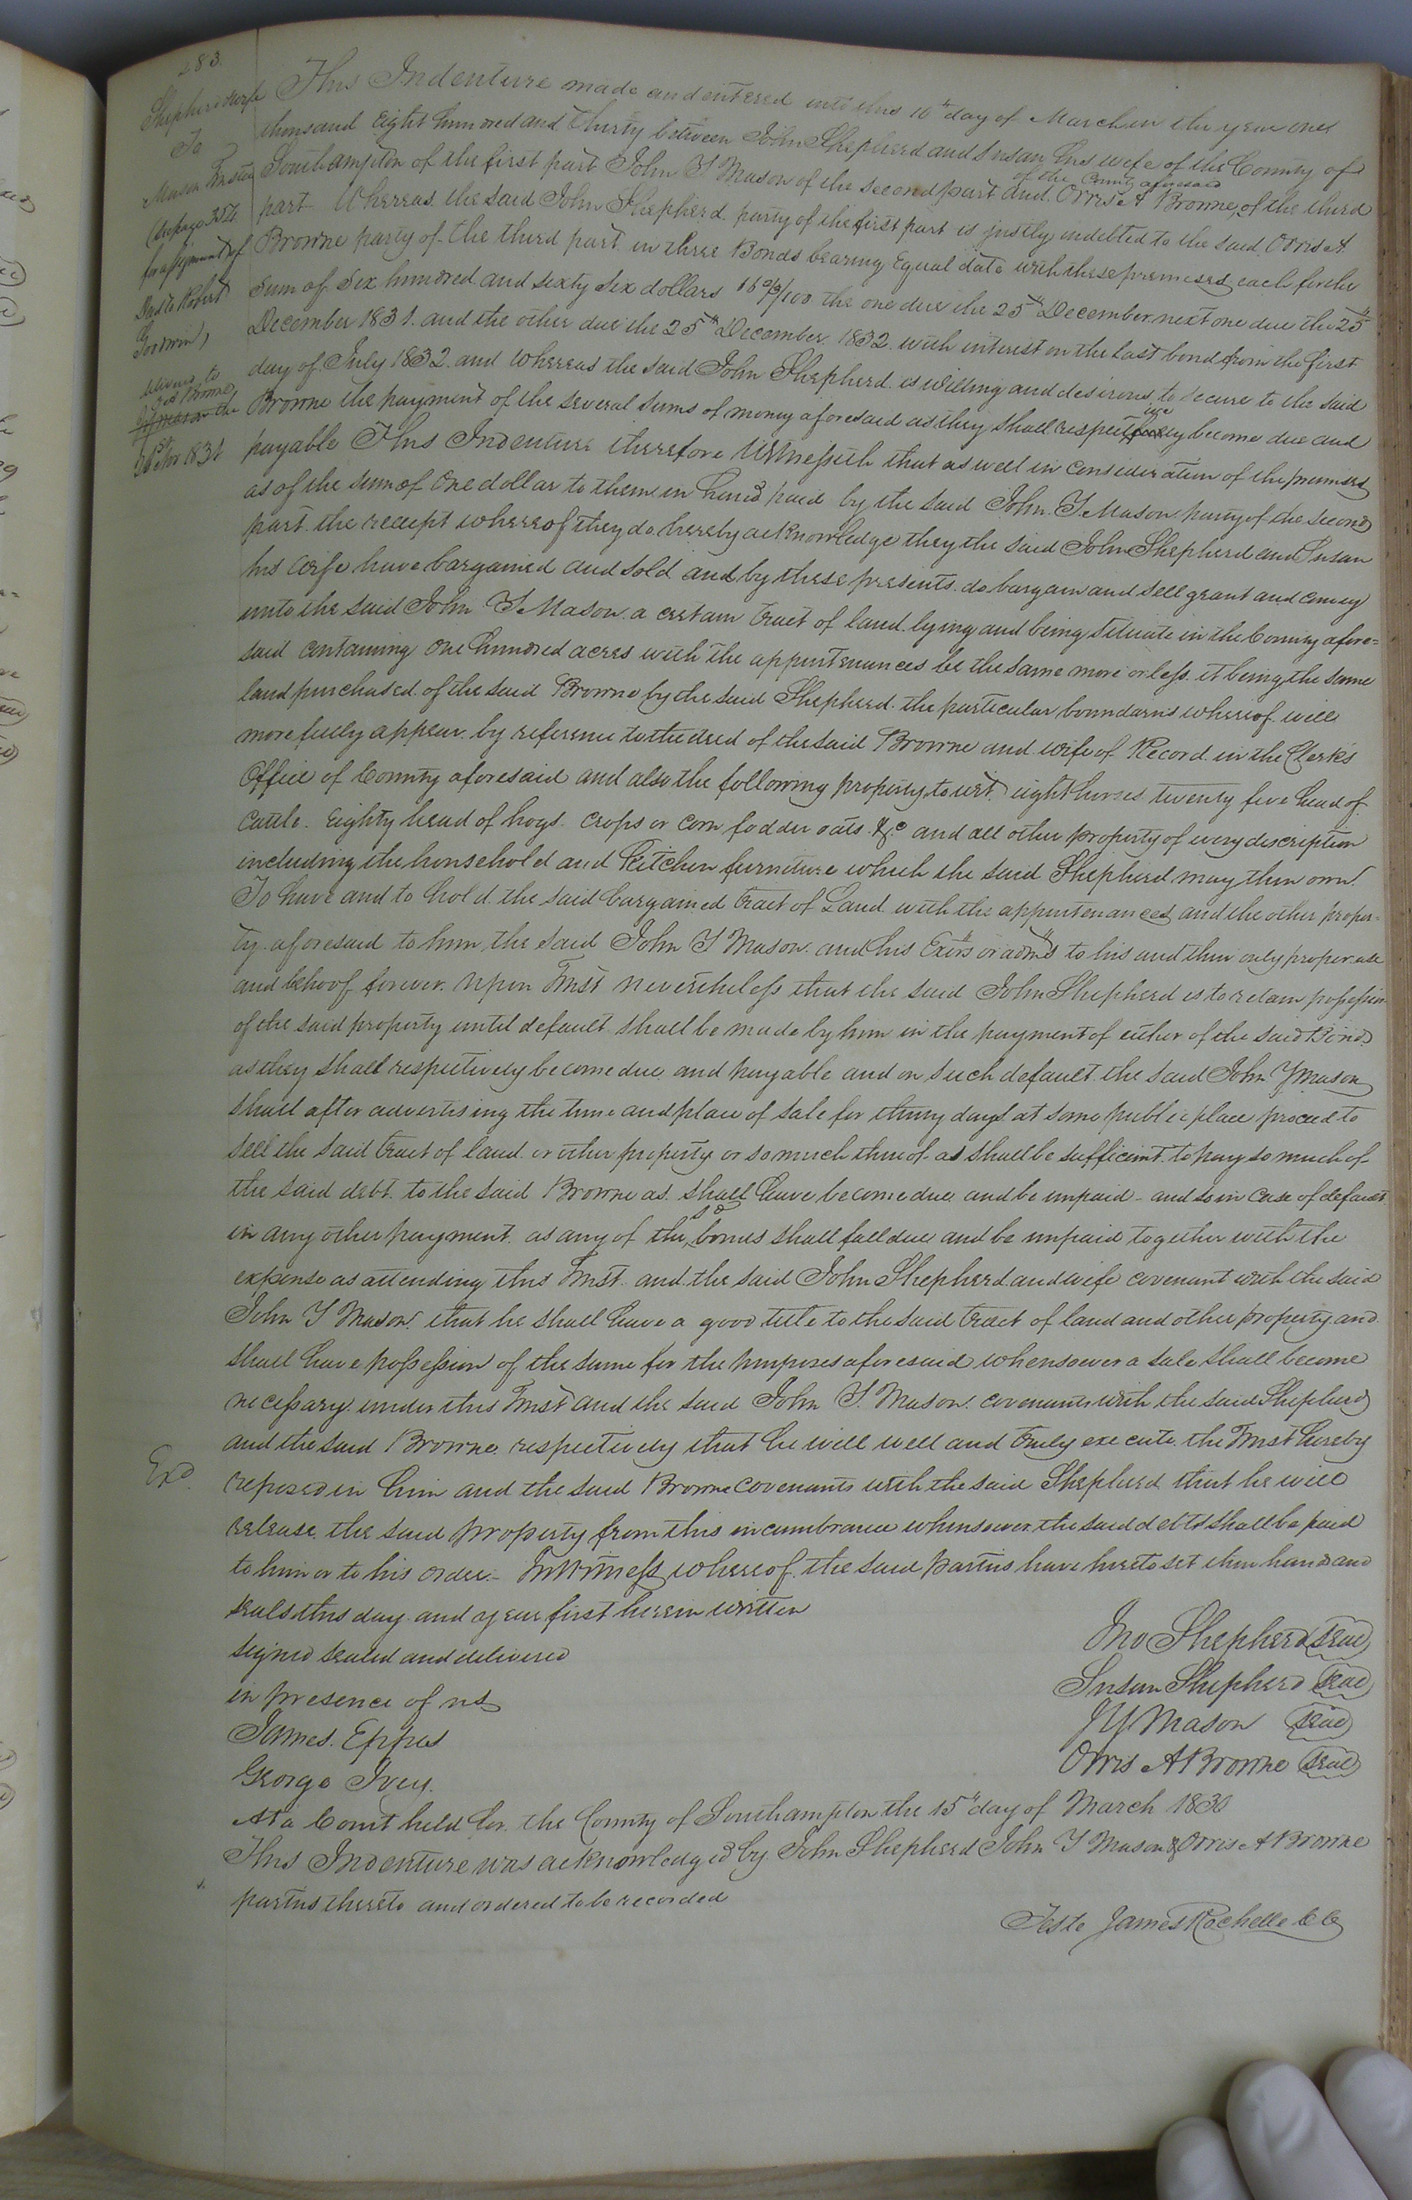 283.
Shepherd &wife
To
Mason Trustee
(See page 352
for assignment of
Deed to Robert
Goodwin)
delivered to
O A Browne
21st Nov 1831
This Indenture made and entered into this 10th day of March in the year one
thousand Eight hundred and Thirty between John Shepherd and Susan his wife of the County of
Southampton of the first part John Y Mason of the second part and Orris A Browne, of the County aforesaid of the third
part Whereas the said John Shepherd party of the first part is justly indebted to the said Orris A
Browne party of the third part in three Bonds bearing Equal date with these premises each for the
sum of Six hundred and sixty six dollars 66/100 the one due the 25th December next one due the 25th
December 1831. and the other due the 25th December 1832 with interest on the last bond from the first
day of July 1832 and whereas the said John Shepherd is willing and desirous to secure to the said
Browne the payment of the several sums of money aforesaid as they shall respectively become due and
payable This Indenture therefore Witnesseth that as well in consideration of the premises
as of the sum of One dollar to them in hand paid by the said John Y Mason party of the second
part the receipt whereof they do hereby acknowledge they the said John Shepherd and Susan
his wife have bargained and sold and by these presents do bargain and sell grant and convey
unto the said John Y Mason a certain tract of land lying and being situate in the County afore=
said containing one hundred acres with the appurtenances be the same more or less it being the same
land purchased of the said Browne by the said Shepherd the particular boundaries whereof will
more fully appear by reference to the deed of the said Browne and wife of Record in the Clerk's
Office of County aforesaid and also the following property to wit eight horses twenty five head of
cattle. Eighty head of hogs crops or corn fodder oats &c and all other property of every discription
including the household and Kitchen furniture which the said Shepherd may then own
To have and to hold the said bargained tract of Land with the appurtenances and the other proper=
ty aforesaid to him the said John Y Mason and his Exors or admrs to his and their only proper use
and behoof forever. Upon Trust nevertheless that the said John Shepherd is to retain possession
of the said property until default shall be made by him in the payment of either of the said Bonds
as they shall respectively become due and payable and on such default the said John Y Mason
shall after advertising the time and place of sale for thirty days at some public place proceed to
sell the said tract of land or other property or so much thereof as shall be sufficient to pay so much of
the said debt to the said Browne as shall have become due and be unpaid - and so in case of default
in any other payment as any of the sd bonds shall fall due and be unpaid together with the
expense as attending this Trust and the said John Shepherd and wife covenant with the said
John Y Mason that he shall have a good title to the said tract of land and other property and
shall have possession of the same for the purposes aforesaid whensoever a sale shall become
necessary under this Trust and the said John Y. Mason covenants with the said Shepherd
and the said Browne respectively that he will well and truly execute the Trust hereby
Exd.
reposed in him and the said Browne covenants with the said Shepherd that he will
release the said property from this incumbrance whensoever the said debts shall be paid
to him or to his order.- In Witness whereof the said parties have hereto set their hands and
seals this day and year first herein written
signed sealed and delivered
in presence of us
James. Eppes
George Ivey.
Jno Shepherd Seal
Susan Shepherd Seal
JY Mason Seal
Orris A Browne Seal
At a Court held for the County of Southampton the 15th day of March 1830
This Indenture was acknowledged by John Shepherd John Y Mason & Orris A Browne
parties thereto and ordered to be recorded
Teste James Rochelle CC